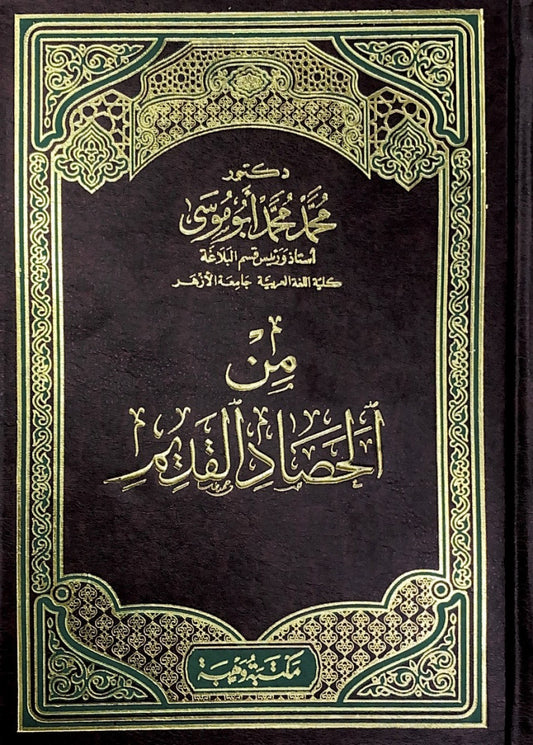 دكتور
مُحَمَّد مُحَمَّد أَبُو مُوسَى
أستاذ ورئيس قسم البَلَاغَة
كلية اللغة العربية جامعة الأزهر
مِنَ
الحَصَادِ القَدِيمِ
مكتبة وهبة